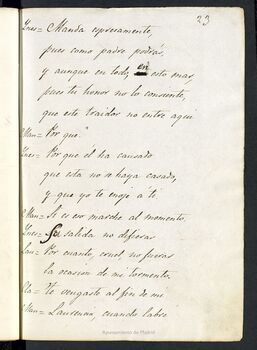 23
Ynes= Manda espresamente,
pues como padre podrás,
y aunque en todo, en esto mas,
pues tu honor no lo consiente,
que este traidor no entre aqui.
Man= Por que?
Ynes= Por que el ha causado
que esta no se haya casado,
y que yo te enoje á ti.
Man= Si es eso marche al momento.
Ynes= Su salida no difieras
Lau= Por cuanto, cruel, no fueras
la ocasion de mi tormento.
Cla= Te vengaste al fin de mi.
Man= Laurencia, cuando labre
Ayuntamiento de Madrid